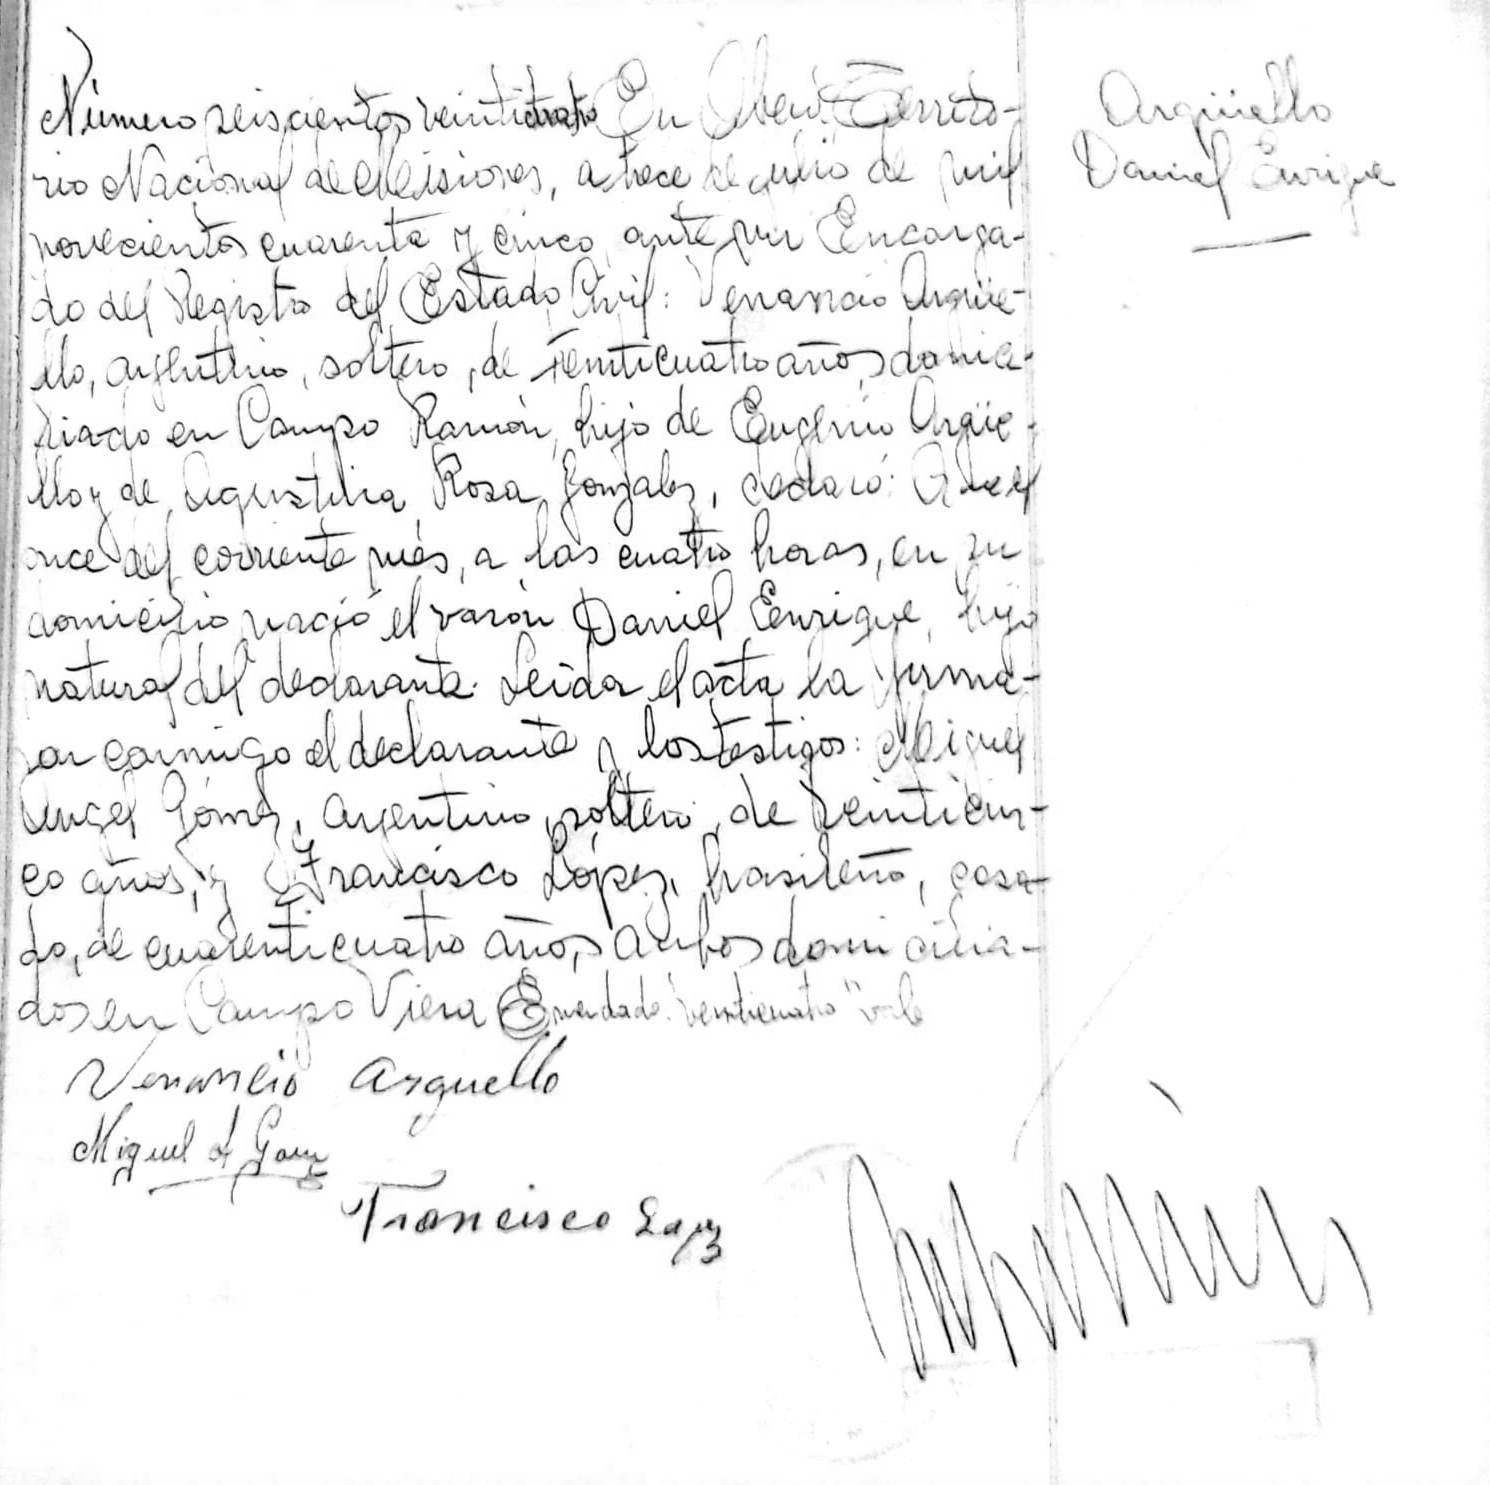 Número seiscientos veinticuatro En Oberá Territo-
rio Nacional de Misiones, a trece de julio de mil
novecientos cuarenta y cinco, ante mi Encarga-
do del Registro del Estado Civil: Venancio Argüe-
llo, argentino, soltero, de veinticuatro años, domici-
liado en Campo Ramón, hijo de Eugenio Argüe-
llo y de Agustina Rosa Gonzalez, declaró: Que el
once del corriente mes, a las cuatro horas, en su
domicilio nació el varón Daniel Enrique, hijo
natural del declarante. Leida el acta la firma-
ron conmigo el declarante y los testigos: Miguel
Angel Gómez, argentino, soltero, de veinticin-
co años, y Francisco López, brasileño, casa-
do, de cuarenticuatro años, ambos domicilia-
dos en Campo Viera Enmendado: "veinticuatro" vale
Venancio Arguello
Miguel A Gomez
Francisco Lopez
Argüello
Daniel Enrique